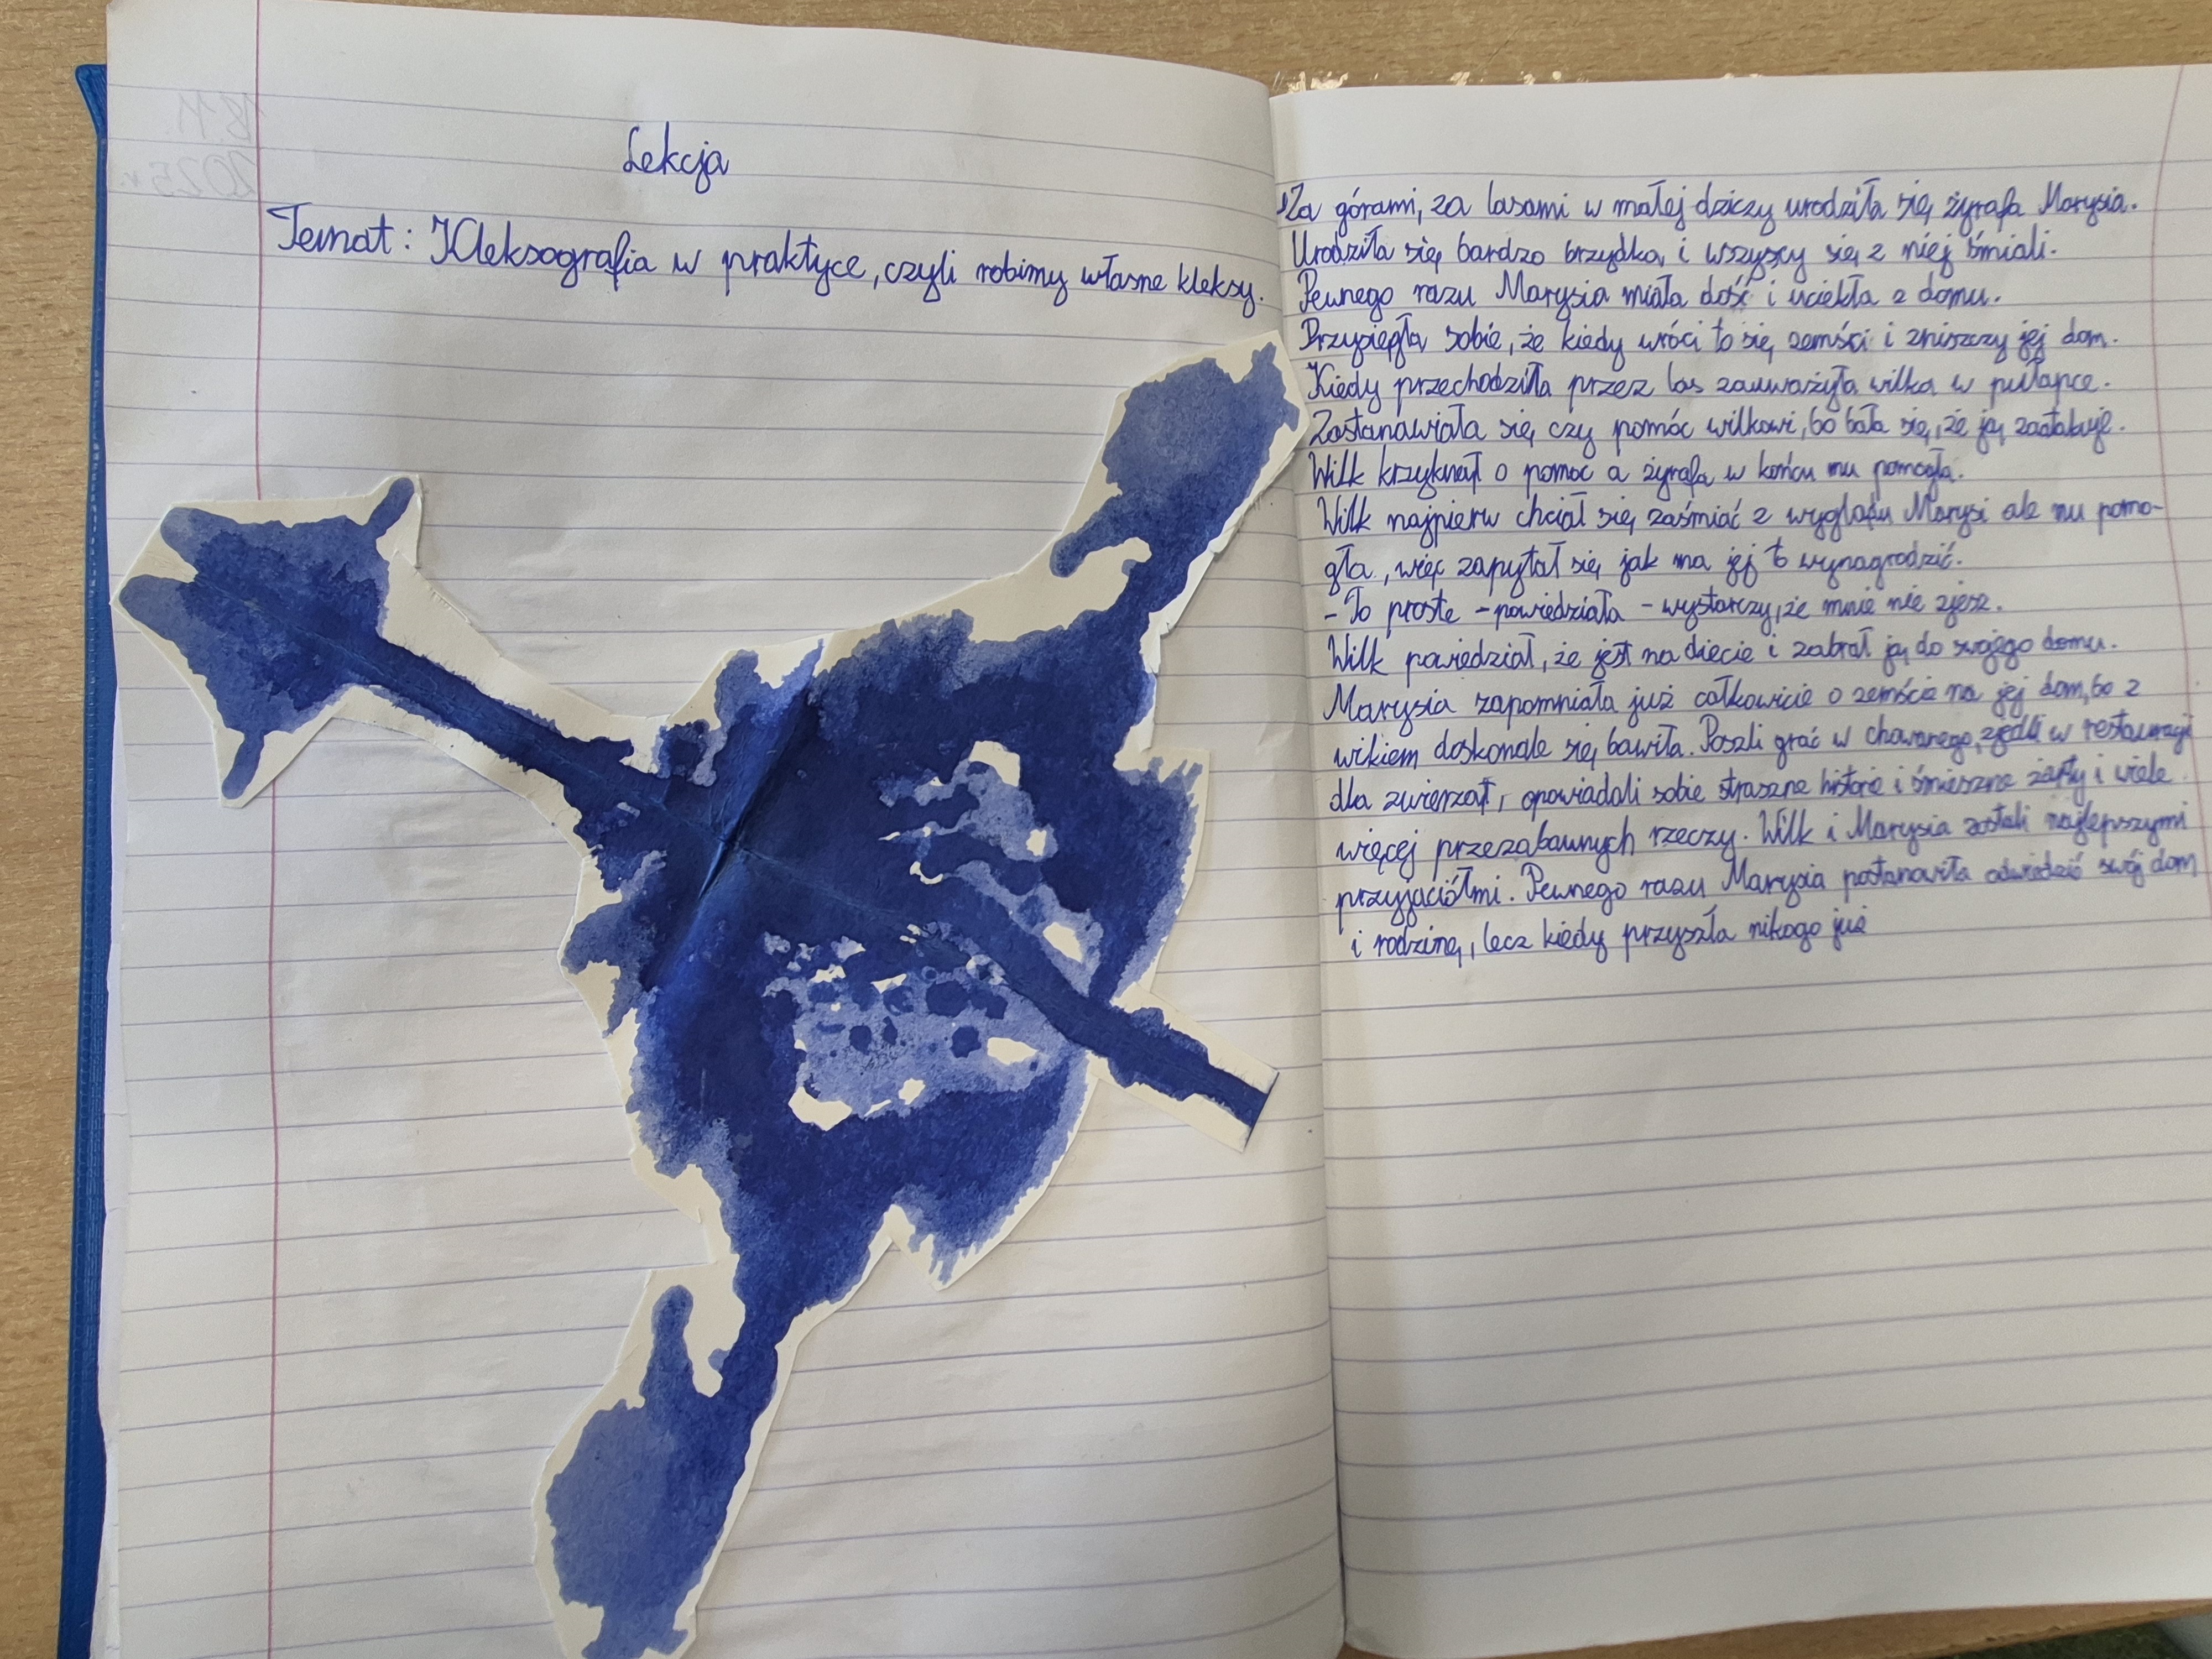 Lekcja
Temat: Kleksografia w praktyce, czyli robimy własne kleksy.
Za górami, za lasami w małej dziczy urodziła się żyrafa Marysia.
Urodziła się bardzo brzydka, i wszyscy się z niej śmiali.
Pewnego razu Marysia miała dość i uciekła z domu.
Przysięgła sobie, że kiedy wróci to się zemści i zniszczy jej dom.
Kiedy przechodziła przez las zauważyła wilka w pułapce.
Zastanawiała się czy pomóc wilkowi, bo bała się, że ją zaatakuje.
Wilk krzyknął o pomoc a żyrafa w końcu mu pomogła.
Wilk najpierw chciał się zaśmiać z wyglądu Marysi ale mu pomo-
gła, więc zapytał się jak ma jej to wynagrodzić.
- To proste - powiedziała - wystarczy, że mnie nie zjesz.
Wilk powiedział, że jest na diecie i zabrał ją do swojego domu.
Marysia zapomniała już całkowicie o zemście na jej dom, bo z
wilkiem doskonale się bawiła. Poszli grać w chowanego, zjedli w restauracji
dla zwierząt, opowiadali sobie straszne historie i śmieszne żarty i wiele
więcej przezabawnych rzeczy. Wilk i Marysia zostali najlepszymi
przyjaciółmi. Pewnego razu Marysia postanowiła odwiedzić swój dom
i rodzinę, lecz kiedy przyszła nikogo już
18.11
2025r.